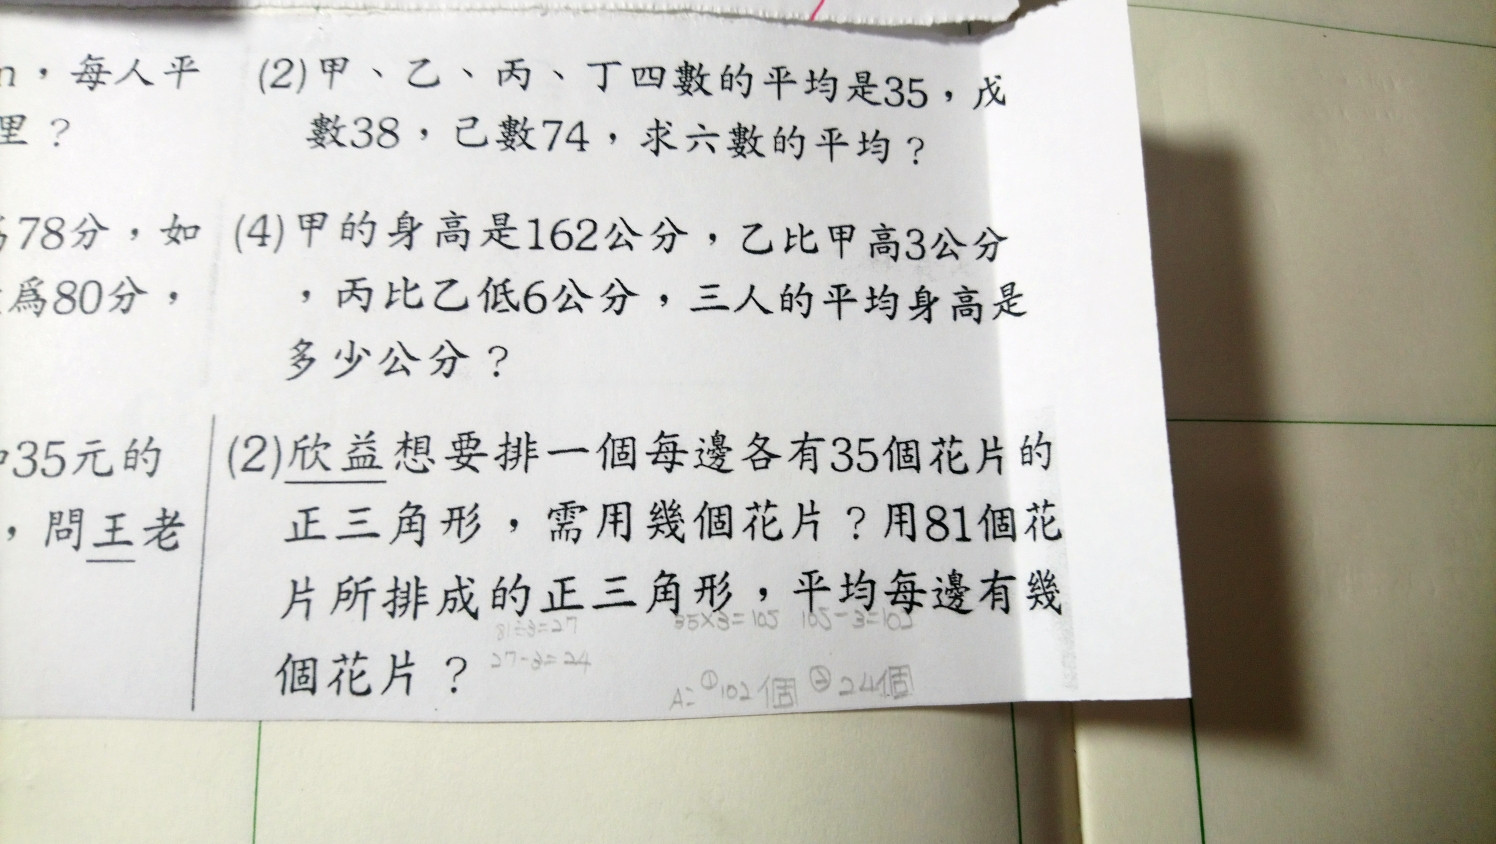 n，每人平
里？
(2)甲、乙、丙、丁四數的平均是35，戊
數38，己數74，求六數的平均？
78分，如
為80分，
(4)甲的身高是162公分，乙比甲高3公分
，丙比乙低6公分，三人的平均身高是
多少公分？
35元的
，問王老
(2)欣益想要排一個每邊各有35個花片的
正三角形，需用幾個花片？用81個花
片所排成的正三角形，平均每邊有幾
個花片？
81÷3=27
27-3=24
35×3=105 105-3=102
A=①102個 ②24個